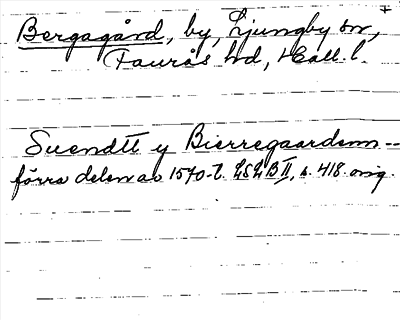 Bergagård, by, Ljungby sn,
Faurås hd, Hall. l.
Suendtt y Bierregaardsm--
förra delen av 1570-t. LSLB II, s. 418. orig.